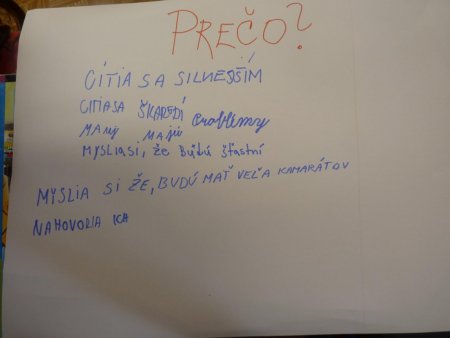 PREČO?
CÍTIA SA SILNEJŠÍM
CITIASA ŠKAREDÍ
MAJÚ problémy
MYSLIASI, že BUDÚ šťastní
MYSLIA SI ŽE, BUDÚ MAŤ VEĽA KAMARÁTOV
NAHOVORIA ICH